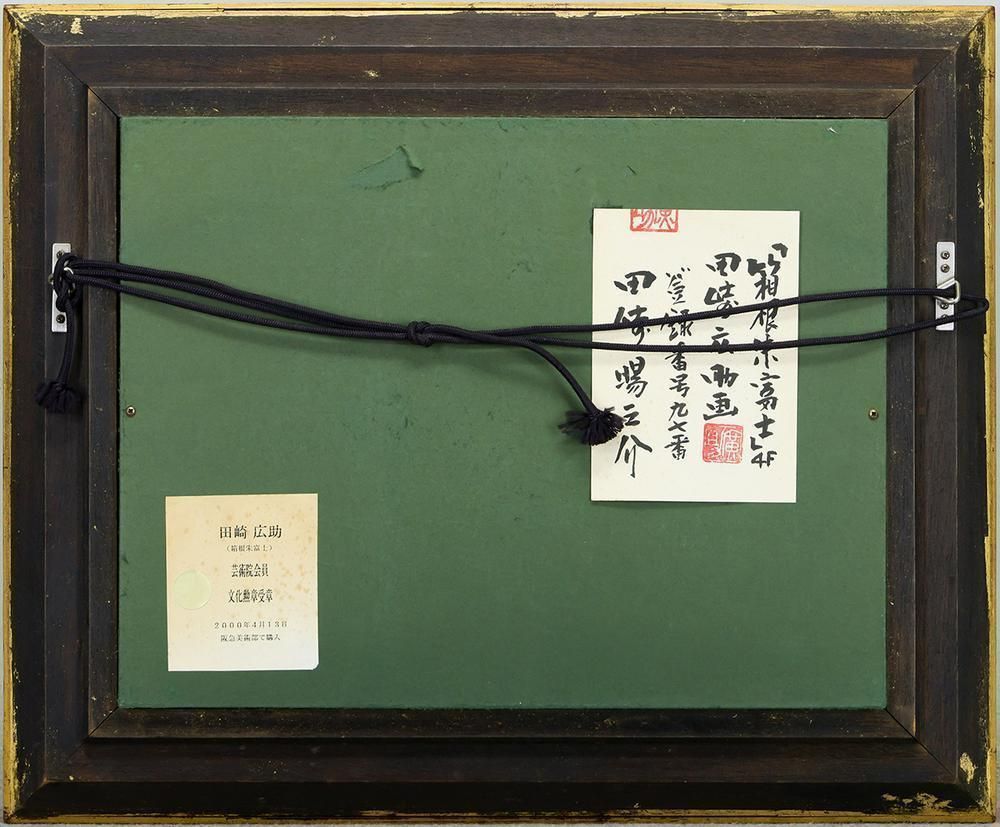 「箱根朱富士」4F
田崎広助画
登録番号九七番
田崎暘之介
田崎 広助
(箱根朱富士)
芸術院会員
文化勲章受章
2000年4月13日
阪急美術部で購入